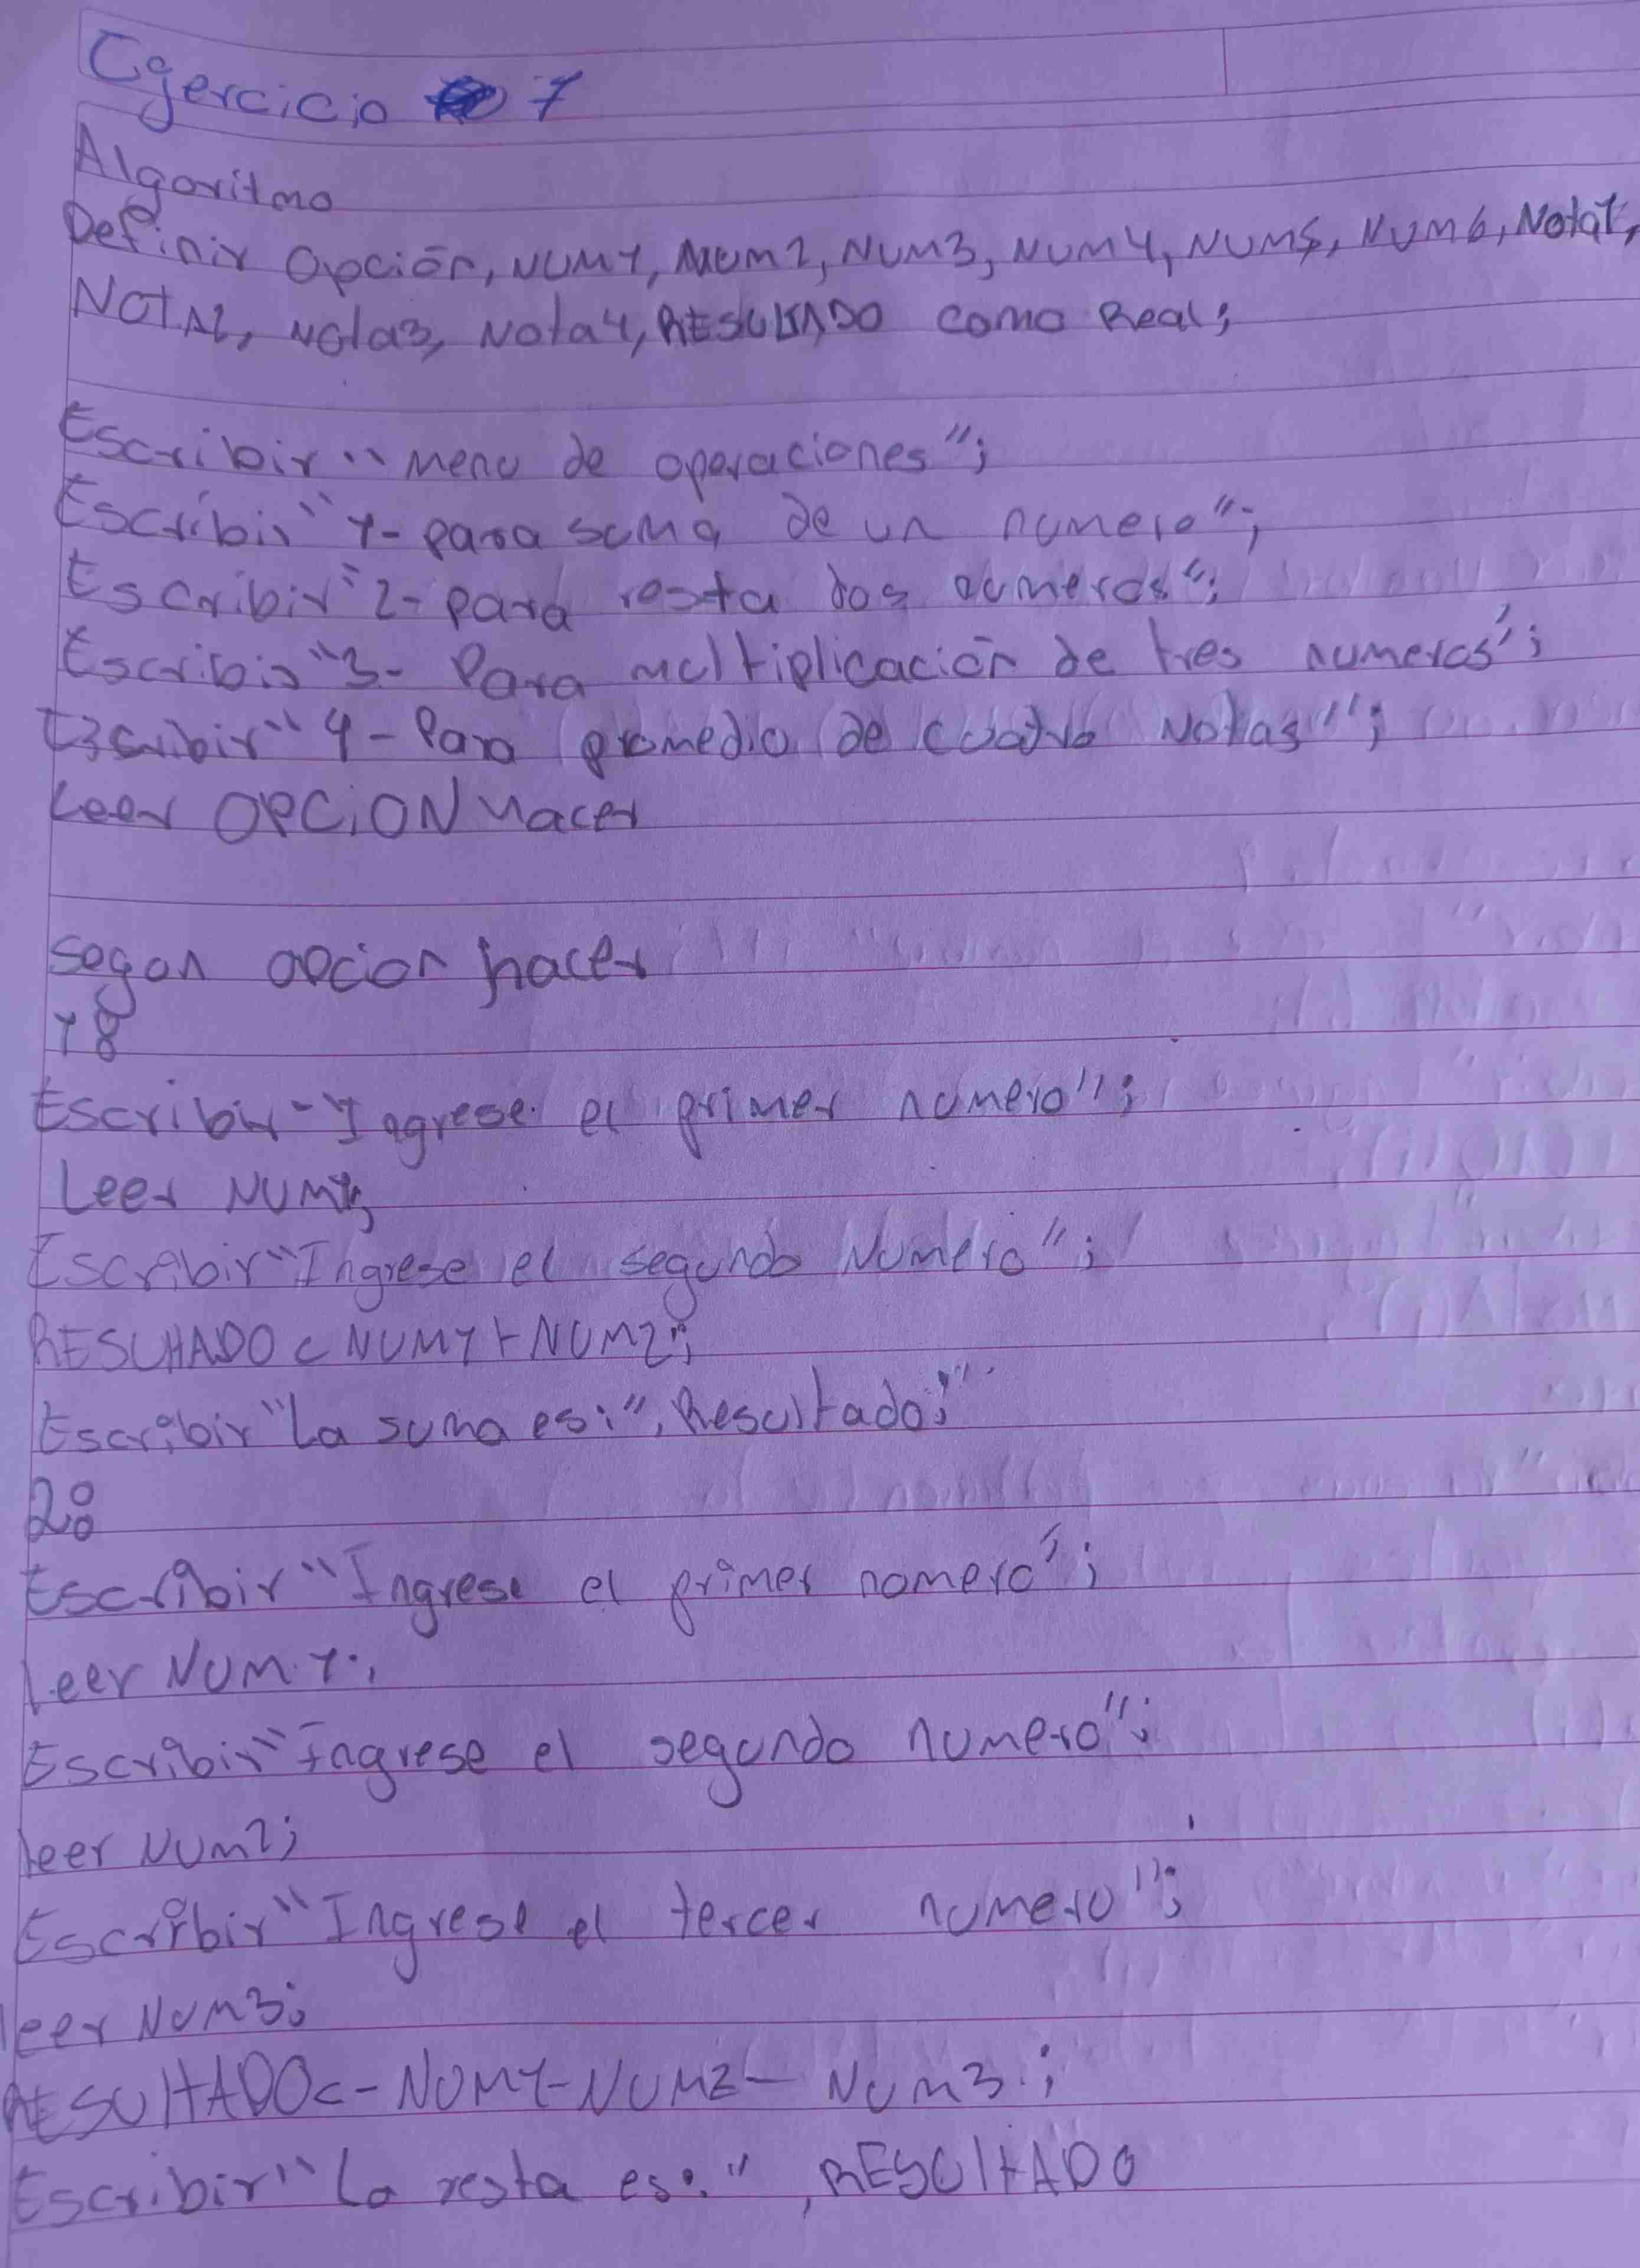 Ejercicio 7
Algoritmo
Definir Opción, NUM1, NUM2, NUM3, NUM4, NUM5, NUM6, Nota1,
NOTA2, Nota3, Nota4, RESULTADO como Real;
Escribir "menu de operaciones";
Escribir "1- para suma de un numero";
Escribir "2- para resta dos numeros";
Escribir "3- Para multiplicación de tres numeros";
Escribir "4- Para promedio de cuatro Notas";
Leer OPCiON hacer
Segun opcion hacer
1:
Escribir "Ingrese el primer numero";
Leer NUM1;
Escribir "Ingrese el segundo Numero";
RESULTADO < NUM1 + NUM2;
Escribir "La suma es:", Resultado;
2:
Escribir "Ingrese el primer numero";
leer NUM1;
Escribir "Ingrese el segundo numero";
leer NUM2;
Escribir "Ingrese el tercer numero";
leer NUM3;
RESULTADO <- NUM1 - NUM2 - NUM3;
Escribir "La resta es:", RESULTADO